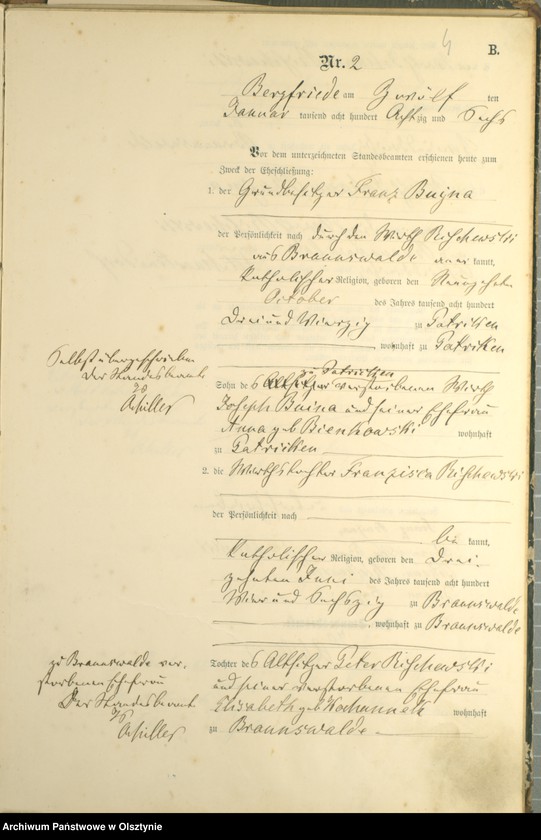 4
B.
Nr. 2
Bergfriede am Zwölf ten
Januar tausend acht hundert Achtzig und Sechs
Vor dem unterzeichneten Standesbeamten erschienen heute zum
Zweck der Eheschließung:
1. der Grundbesitzer Franz Bujna
der Persönlichkeit nach durch den Wirth Rischewski
aus Braunswalde aner kannt,
katholischer Religion, geboren den Neunzehnten
October des Jahres tausend acht hundert
Drei und Vierzig zu Patricken
wohnhaft zu Patricken
Selbst übergeschrieben
Der Standesbeamte
Achiller
zu Patricken
Sohn des Altsitzer verstorbenen Wirth
Joseph Bujna und seiner Ehefrau
Anna geb Bienkowski wohnhaft
zu Patricken
2. die Wirthstochter Franzisca Rischewski
der Persönlichkeit nach
be kannt,
katholischer Religion, geboren den Drei-
zehnten Juni des Jahres tausend acht hundert
Vier und Sechszig zu Braunswalde
, wohnhaft zu Braunswalde
zu Braunswalde ver-
storbenen Ehefrau
Der Standesbeamte
Achiller
Tochter des Altsitzer Peter Rischewski
und seiner verstorbenen Ehefrau
Elisabeth geb wohnhaft
zu Braunswalde
Archiwum Państwowe w Olsztynie